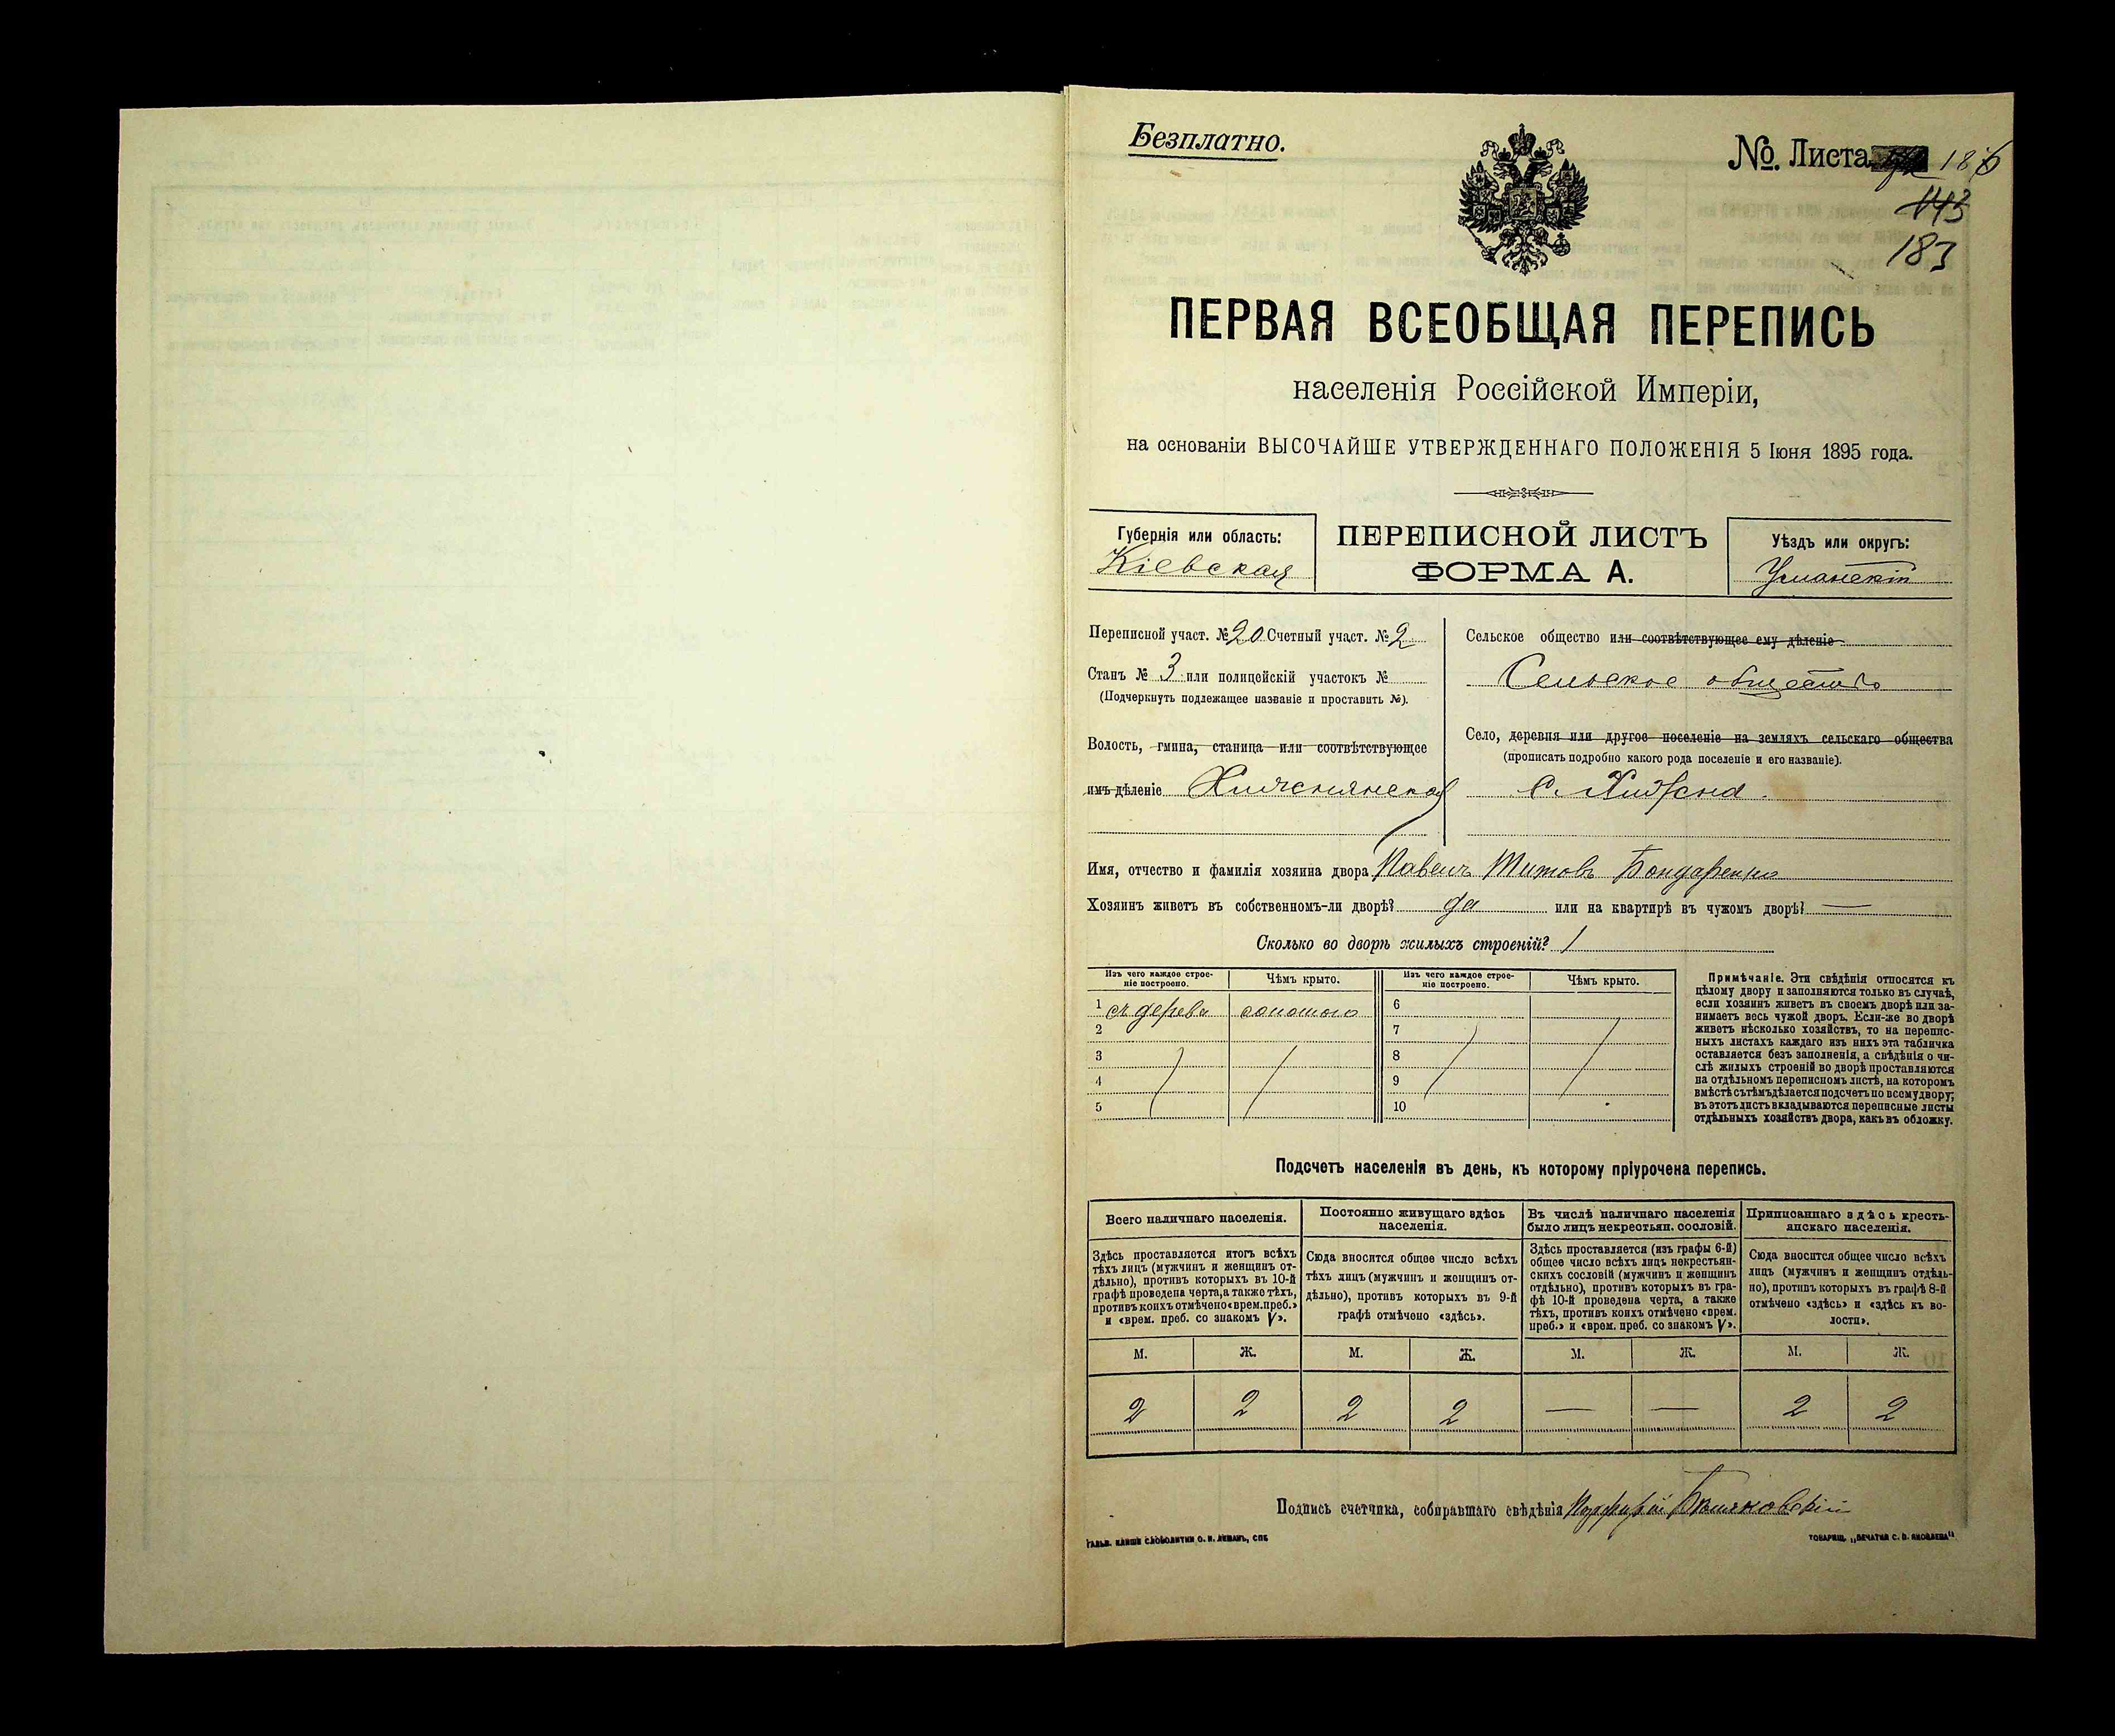 Безплатно.
№ Листа 186
143
183
ПЕРВАЯ ВСЕОБЩАЯ ПЕРЕПИСЬ
населенія Россійской Имперіи,
на основаніи ВЫСОЧАЙШЕ УТВЕРЖДЕННАГО ПОЛОЖЕНІЯ 5 Іюня 1895 года.
Губернія или область:
Кіевская
ПЕРЕПИСНОЙ ЛИСТЪ
ФОРМА А.
Уѣздъ или округъ:
Уманскій
Переписной участ. № 20 Счетный участ. № 2
Станъ № 3 или полицейскій участокъ №
(Подчеркнуть подлежащее названіе и проставить №).
Волость, гмина, станица или соотвѣтствующее
имъ дѣленіе
Сельское общество или соотвѣтствующее ему дѣленіе
Сельское общество
Село, деревня или другое поселеніе на земляхъ сельскаго общества
(прописать подробно какого рода поселеніе и его названіе).
с.
Имя, отчество и фамилія хозяина двора Павелъ Титовъ Бондаренко
Хозяинъ живетъ въ собственномъ-ли дворѣ? да или на квартирѣ въ чужомъ дворѣ? —
Сколько во дворѣ жилыхъ строеній? 1
Изъ чего каждое строе-
ніе построено.
Чѣмъ крыто.
Изъ чего каждое строе-
ніе построено.
Чѣмъ крыто.
1 съ дерева соломою 6
2 7
3 8
4 9
5 10
Примѣчаніе. Эти свѣдѣнія относятся къ
цѣлому двору и заполняются только въ случаѣ,
если хозяинъ живетъ въ своемъ дворѣ или за-
нимаетъ весь чужой дворъ. Если-же во дворѣ
живетъ нѣсколько хозяйствъ, то на перепис-
ныхъ листахъ каждаго изъ нихъ эта табличка
оставляется безъ заполненія, а свѣдѣнія о чи-
слѣ жилыхъ строеній во дворѣ проставляются
на отдѣльномъ переписномъ листѣ, на которомъ
вмѣстѣ съ тѣмъ дѣлается подсчетъ по всему двору;
въ этотъ листъ вкладываются переписные листы
отдѣльныхъ хозяйствъ двора, какъ въ обложку.
Подсчетъ населенія въ день, къ которому пріурочена перепись.
Всего наличнаго населенія.
Здѣсь проставляется итогъ всѣхъ
тѣхъ лицъ (мужчинъ и женщинъ от-
дѣльно), противъ которыхъ въ 10-й
графѣ проведена черта, а также тѣхъ,
противъ коихъ отмѣчено «врем. преб.»
и «врем. преб. со знакомъ V».
Постоянно живущаго здѣсь
населенія.
Сюда вносится общее число всѣхъ
тѣхъ лицъ (мужчинъ и женщинъ от-
дѣльно), противъ которыхъ въ 9-й
графѣ отмѣчено «здѣсь».
Въ числѣ наличнаго населенія
было лицъ некрестьян. сословій.
Здѣсь проставляется (изъ графы 6-й)
общее число всѣхъ лицъ некрестьян-
скихъ сословій (мужчинъ и женщинъ
отдѣльно), противъ которыхъ въ гра-
фѣ 10-й проведена черта, а также
тѣхъ, противъ коихъ отмѣчено «врем.
преб.» и «врем. преб. со знакомъ V».
Приписаннаго здѣсь кресть-
янскаго населенія.
Сюда вносится общее число всѣхъ
лицъ (мужчинъ и женщинъ отдѣль-
но), противъ которыхъ въ графѣ 8-й
отмѣчено «здѣсь» и «здѣсь къ во-
лости».
М. Ж. М. Ж. М. Ж. М. Ж.
2 2 2 2 — — 2 2
Подпись счетчика, собиравшаго свѣдѣнія Порфирій
ГАЛЬВ. КЛИШЕ СЛОВОЛИТНИ О. И. ЛЕМАНЪ, СПБ
ТОВАРИЩ. „ПЕЧАТНЯ С. П. ЯКОВЛЕВА"